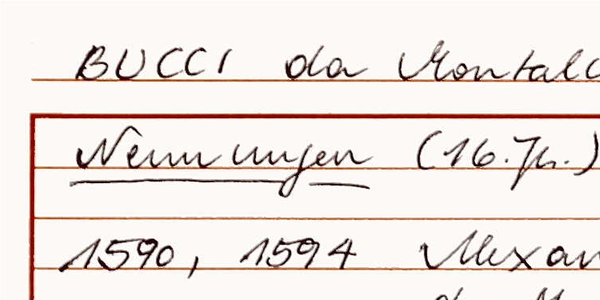 BUCCI da Montalc
Nennungen (16. Jh.)
1590, 1594 Alexan